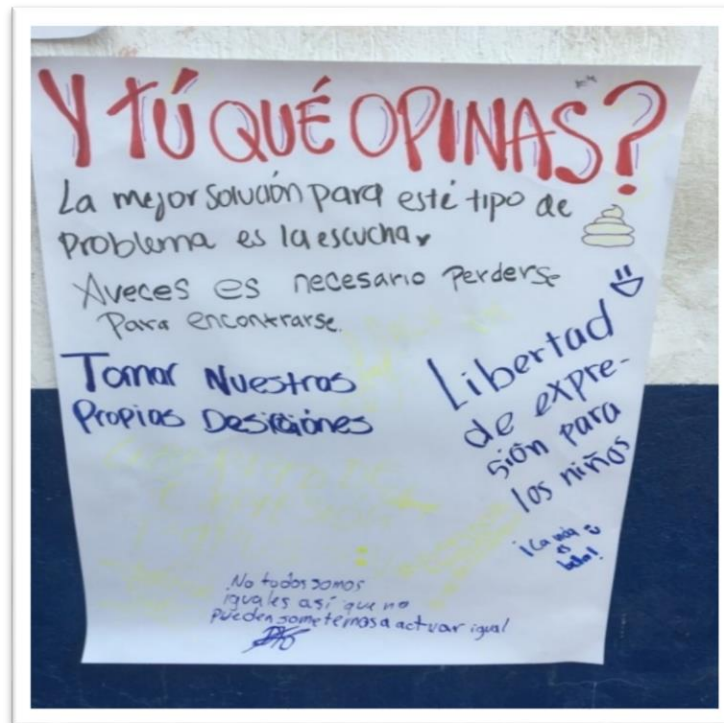 Y TÚ QUÉ OPINAS?
La mejor solución para esté tipo de
problema es la escucha
Aveces es necesario Perderse
Para encontrarse.
Tomar Nuestras
Propias
Libertad
de expre-
sión para
los niños
¡La vida
es
bella!
No todos somos
iguales así que no
pueden someternos a actuar igual